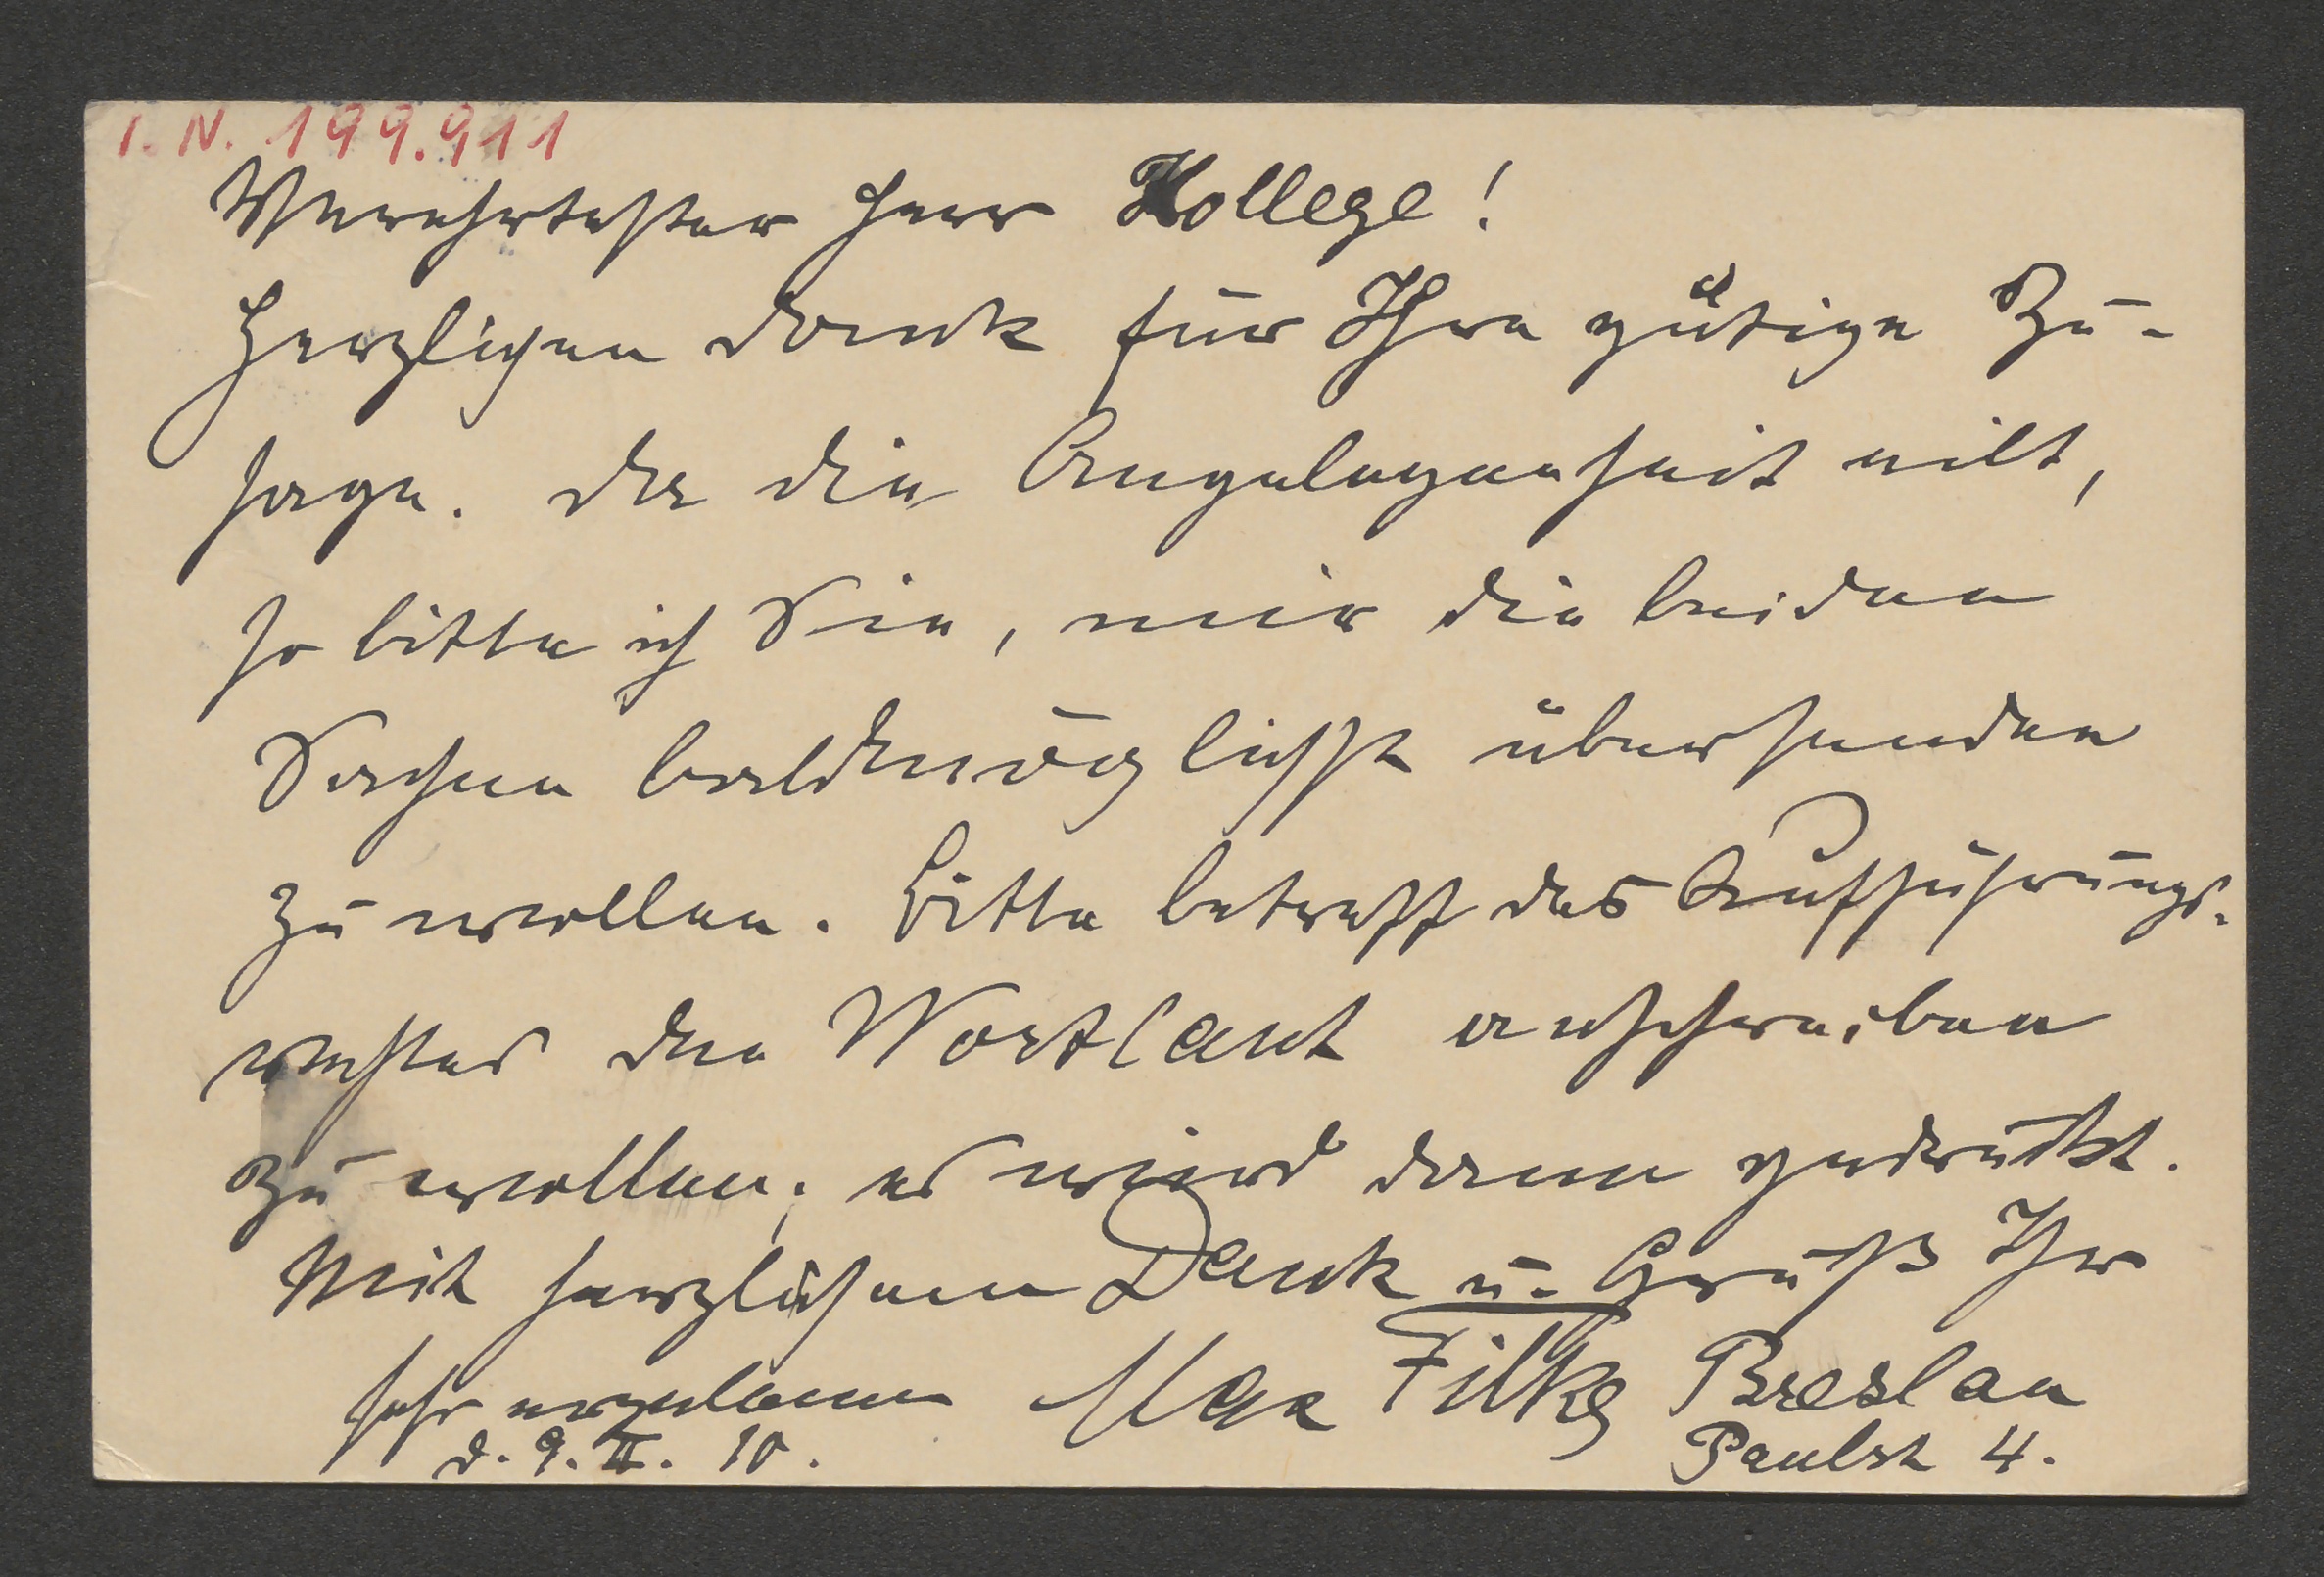 I. N. 199.911
Verehrtester Herr Kollege!
Herzlichen Dank für Ihre gütige Zu-
sage. Da die Angelegenheit eilt,
so bitte ich Sie, mir die beiden
Sachen baldmöglichst übersenden
zu wollen. Bitte betreff des Aufführungs-
rechtes den Wortlaut aufschreiben
zu wollen; es wird dann gedruckt.
Mit herzlichem Dank u. Gruß Ihr
sehr ergebener Max Filke Breslau
d. 9. II. 10. Paulst 4.